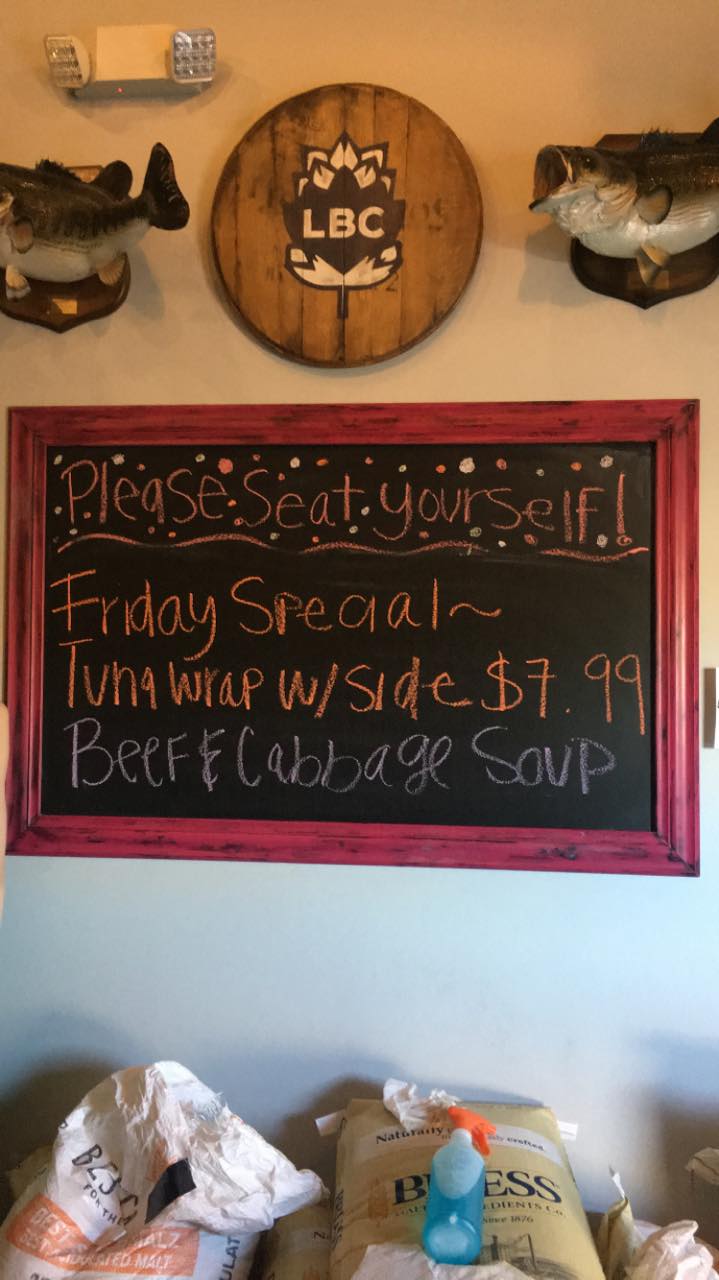 LBC
Please Seat yourself!
Friday Special~
Tuna wrap w/side $7.99
Beef & Cabbage Soup
BEST
FOR THE
BEST MALZ
MALT
Naturally crafted
B ESS
MALT INGREDIENTS Co.
Since 1876